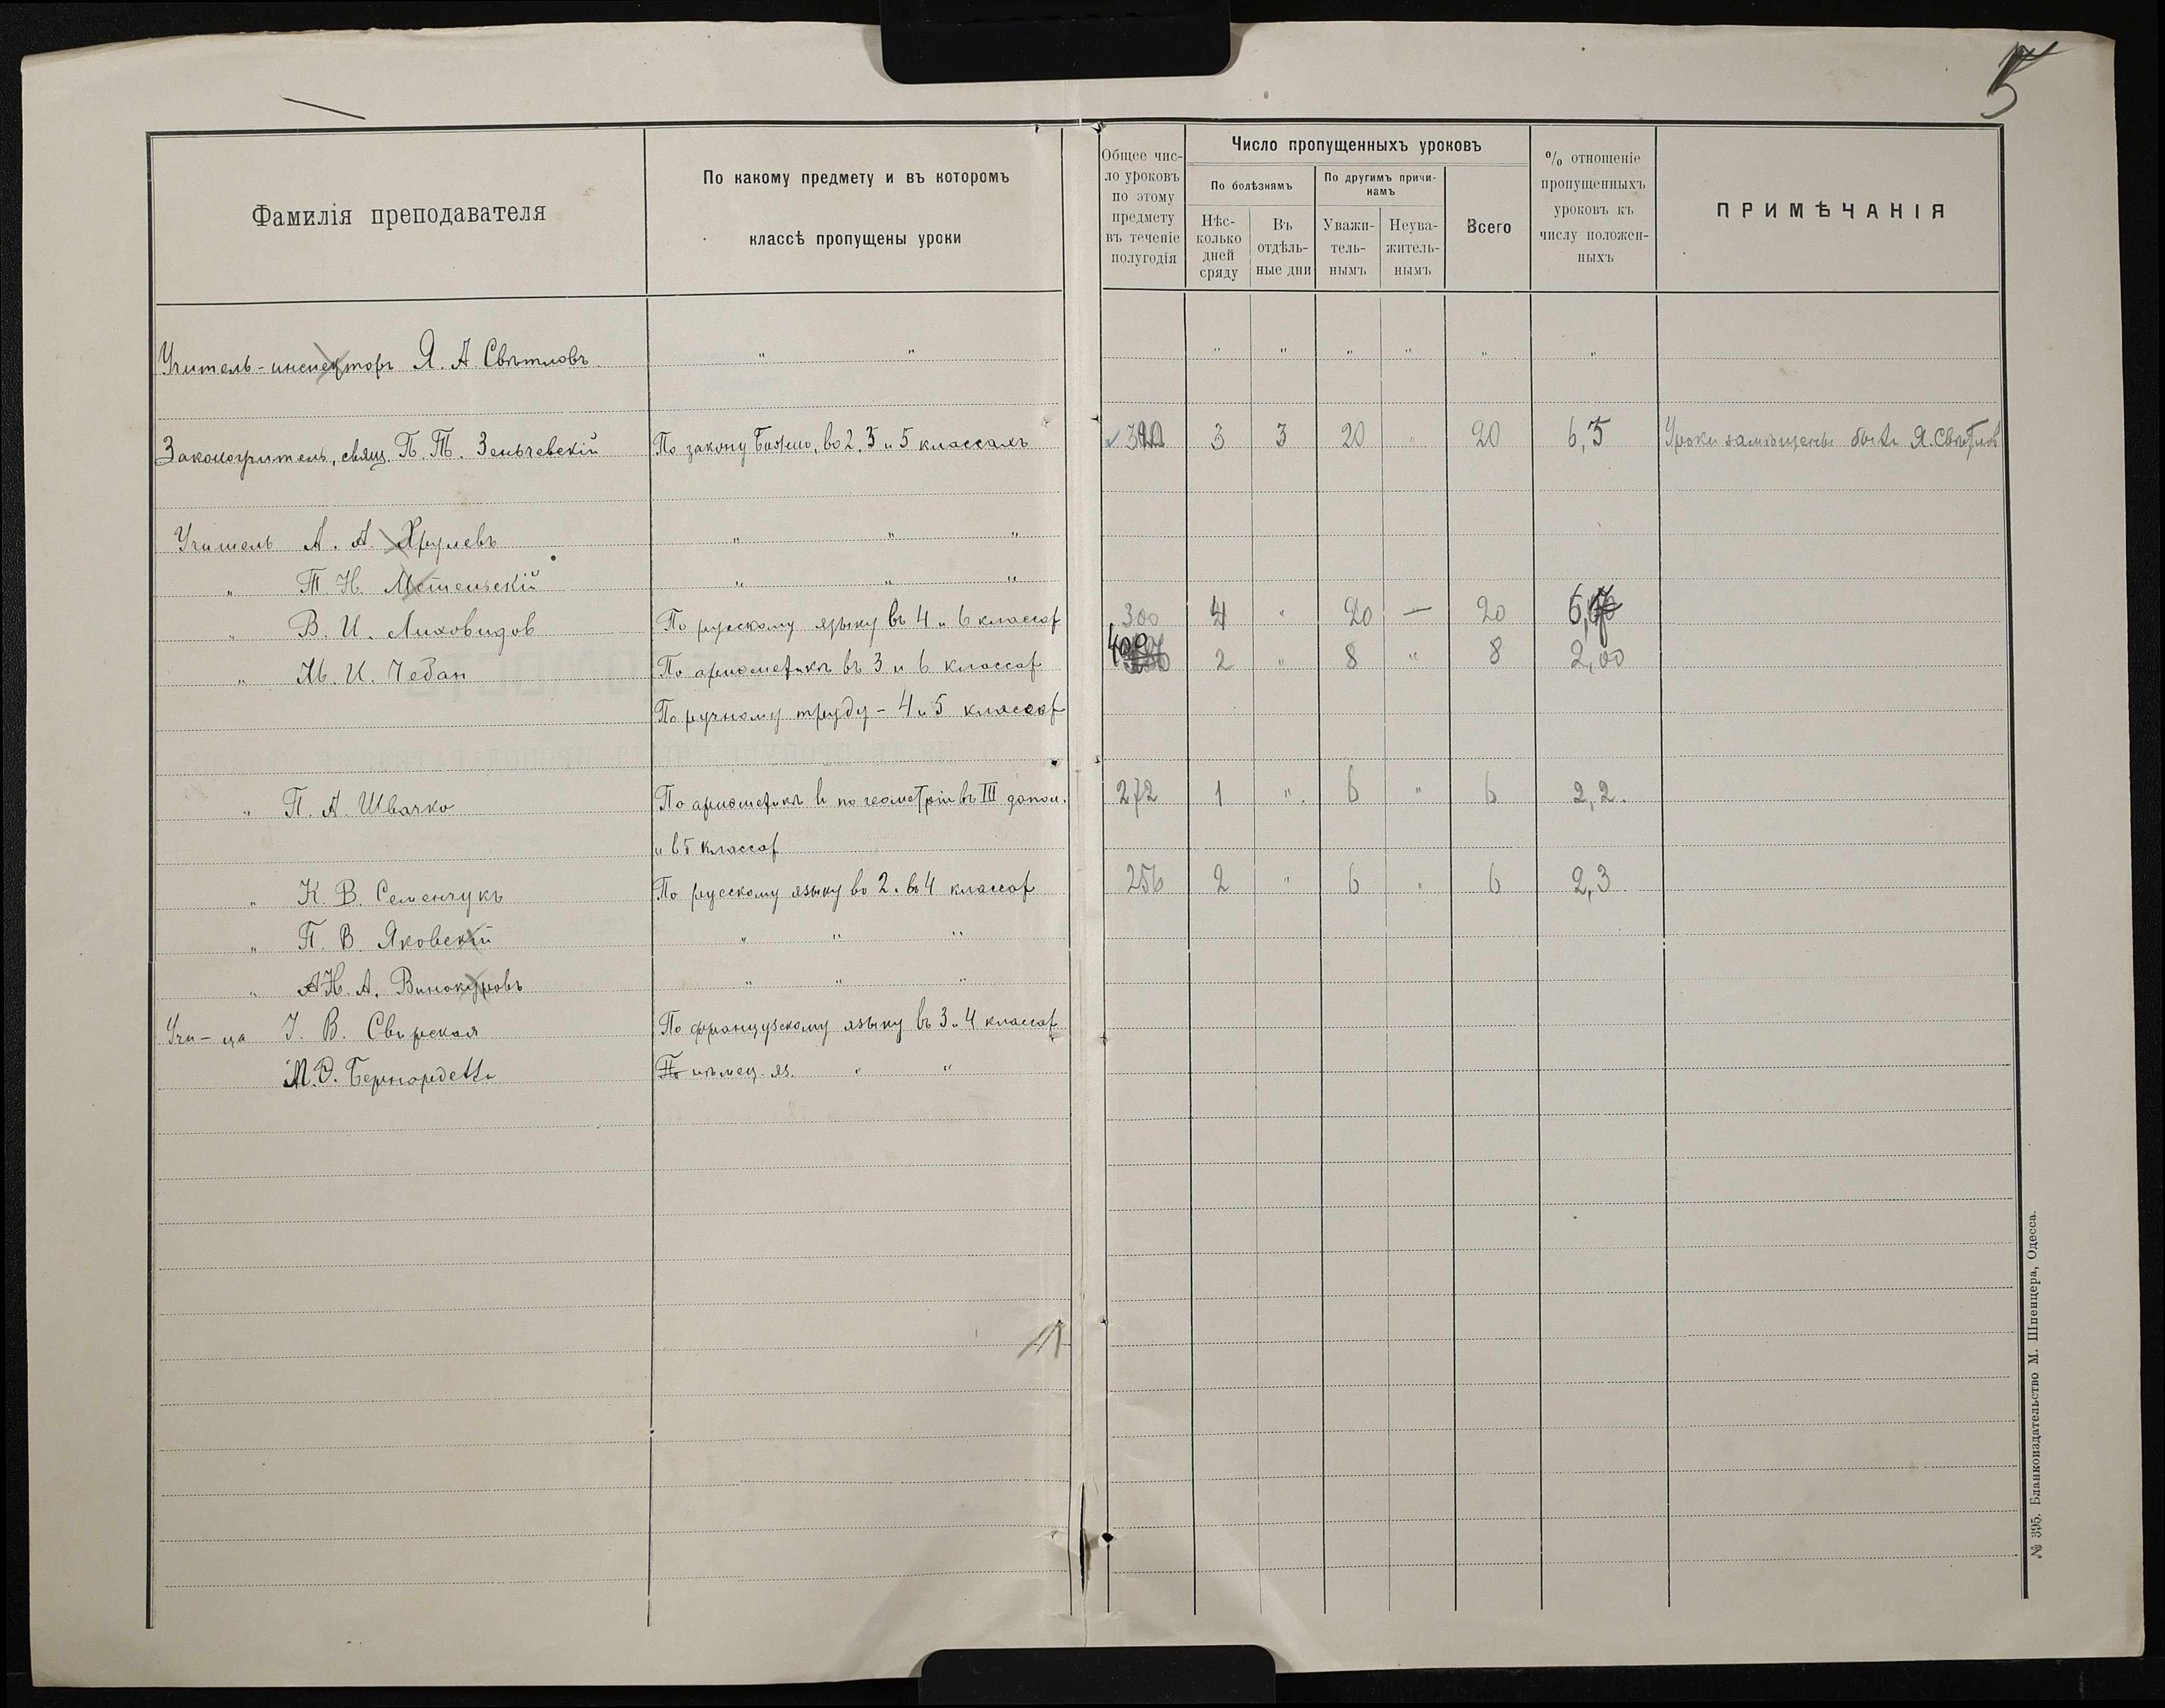 5
Фамилія преподавателя
По какому предмету и въ которомъ
классѣ пропущены уроки
Общее чис-
ло уроковъ
по этому
предмету
въ теченіе
полугодія
Число пропущенныхъ уроковъ
По болѣзнямъ
По другимъ причи-
намъ
Нѣс-
колько
дней
сряду
Въ
отдѣль-
ные дни
Уважи-
тель-
нымъ
Неува-
житель-
нымъ
Всего
% отношеніе
пропущенныхъ
уроковъ къ
числу положен-
ныхъ
ПРИМѢЧАНІЯ
Учитель-инспекторъ Я. А. Свѣтловъ " " " " " " " "
Законоучитель, свящ. П. Т. Зеньчевскій По закону Божію, во 2, 3 и 5 классахъ 3 3 20 " 20 6,5 Уроки замѣщены были Я. Свѣтлов
Учитель А. А. Хрулевъ " " "
" Т. Н. Метельскій " " "
" В. И. Лиховидов По русскому языку въ 4 и 6 классах 300 4 " 20 — 20
" М. И. Чебан По ариѳметикѣ въ 3 и 6 классах 400 2 " 8 " 8 2,00
По ручному труду - 4 и 5 классах
" П. А. Швачко По ариѳметикѣ и по геометріи въ III допол. 272 1 " 6 " 6 2,2.
и 6 5 классах
" К. В. Семенчукъ По русскому языку во 2 и въ 4 классах 256 2 " 6 " 6 2,3
" П. В. Яковскій " " "
" Н. А. Винокуровъ " " "
Учи-ца І. В. Свирская По французскому языку въ 3 и 4 классах
М. Э. Бернардетти По нѣмец. яз. " "
№ 395. Бланкоиздательство М. Шпенцера, Одесса.